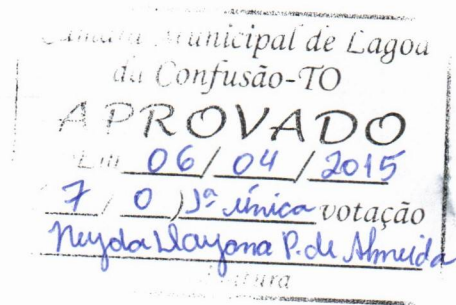 Câmara Municipal de Lagoa
da Confusão-TO
APROVADO
Em 06/04/2015
(7/0) 1ª única votação
P. de Almeida